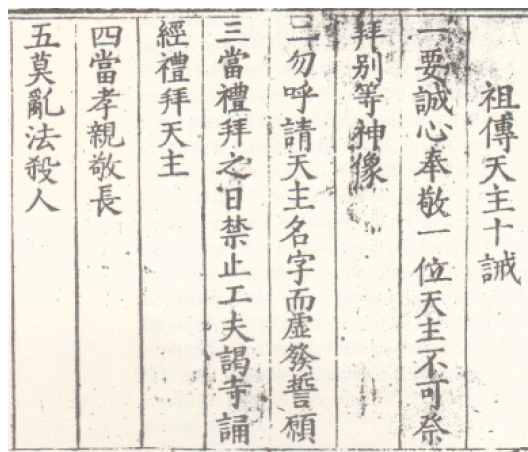 祖傳天主十誡
一要誠心奉敬一位天主不可祭
拜别等神像
二勿呼請天主名字而虛發誓願
三當禮拜之日禁止工夫謁寺誦
經禮拜天主
四當孝親敬長
五莫亂法殺人